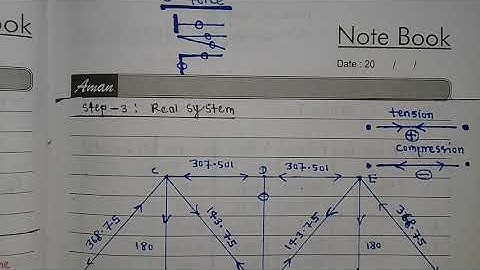 Force
Book
Note Book
Date : 20 / /
Aman
Step-3 : Real System
tension
+
compression
-
307.501 307.501
C D E
368.75 143.75 143.75 368.75
180 180